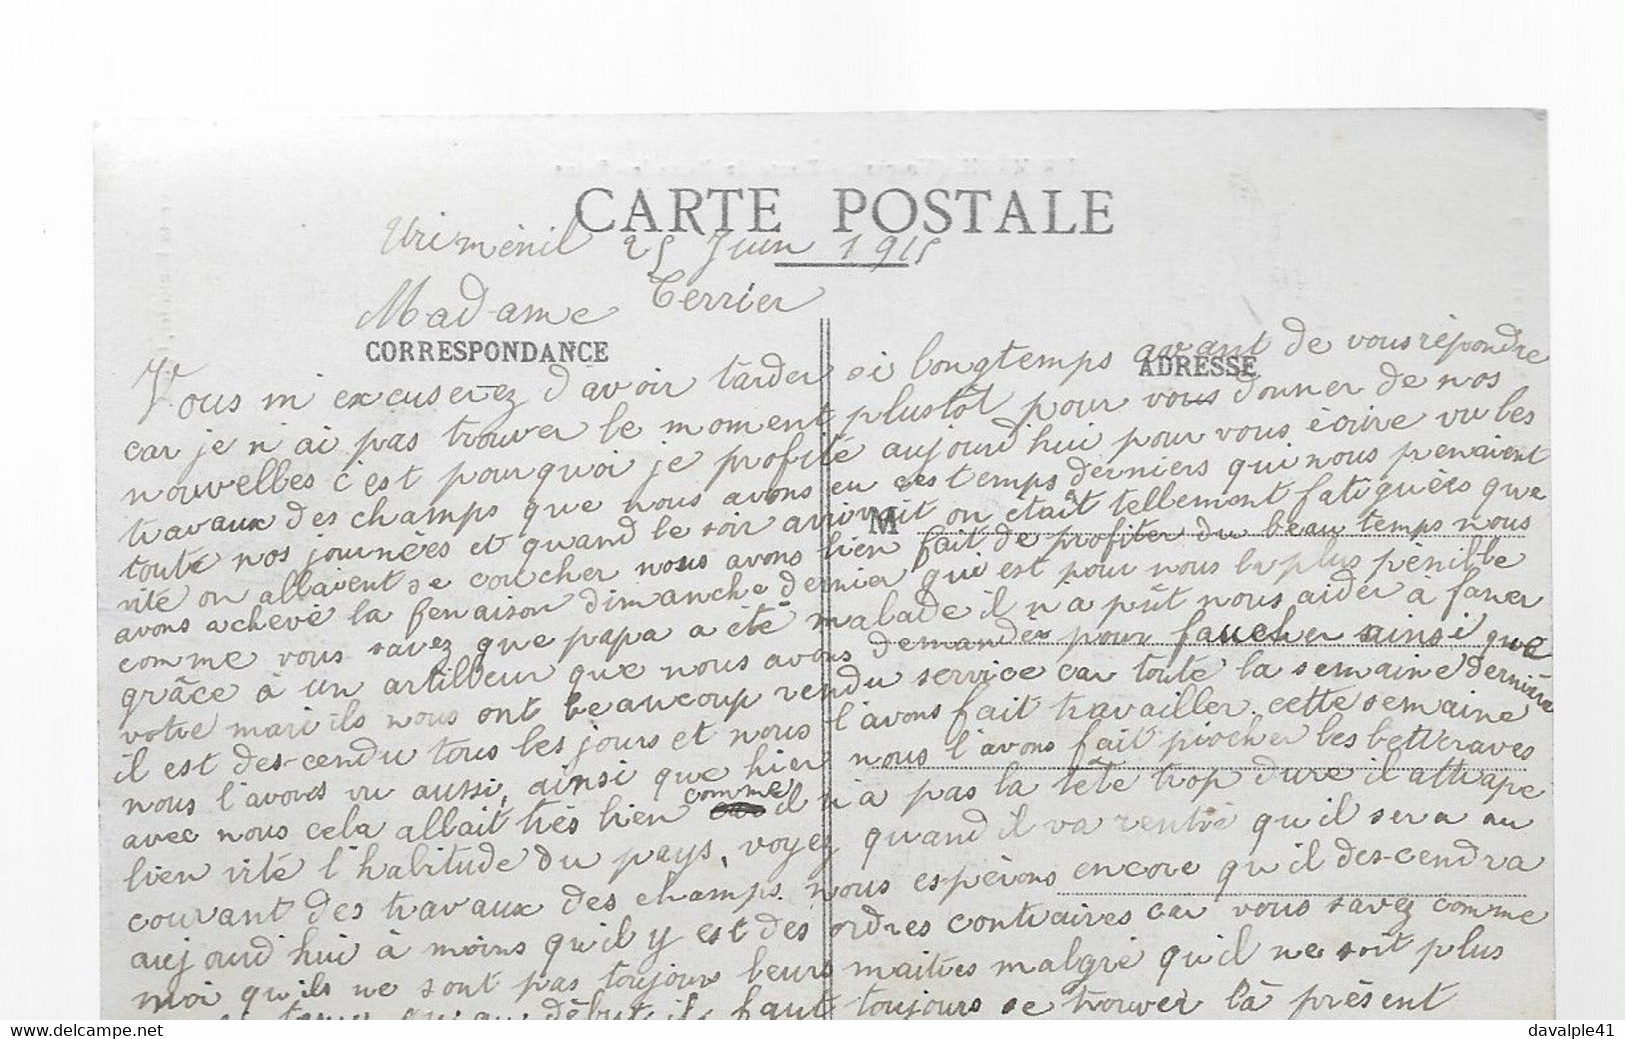 CARTE POSTALE
Uriménil 25 Juin 1915
Madame Terrier
CORRESPONDANCE
ADRESSE
Vous m'excuserez d'avoir tarder si longtemps avant de vous répondre
car je n'ai pas trouver le moment plustôt pour vous donner de nos
nouvelles c'est pourquoi je profite aujourd'hui pour vous écrire vu les
travaux des champs que nous avons eu ces temps derniers qui nous prenaient
toute nos journées et quand le soir arrivait on était tellement fatiguées que
M
vité on allaient se coucher nous avons bien fait de profiter du beau temps nous
avons achevé la fenaison dimanche dernier qui est pour nous la plus pénible
comme vous savez que papa a été malade il n'a pût nous aider à faner
grâce à un artilleur que nous avons demander pour faucher ainsi que
votre mari ils nous ont beaucoup rendu service car toute la semaine dernière
il est des-cendu tous les jours et nous l'avons fait travailler. cette semaine
nous l'avons vu aussi, ainsi que hier nous l'avons fait piocher les betteraves
avec nous cela allait très bien comme il n'a pas la tête trop dure il attrape
bien vité l'habitude du pays, voyez quand il va rentré qu'il sera au
courant des travaux des champs. nous espérons encore qu'il des-cendra
aujourd'hui à moins qu'il y est des ordres contraires car vous savez comme
moi qu'ils ne sont pas toujour leurs maitres malgré qu'il ne soit plus
qu'au début il faut toujours se trouver là présent
delcampe.net
davalple41